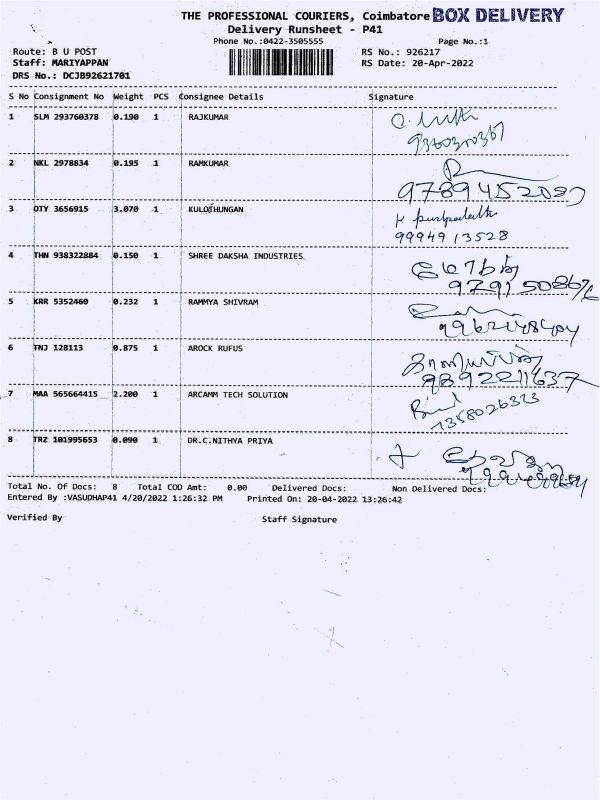 THE PROFESSIONAL COURIERS, Coimbatore BOX DELIVERY
Delivery Runsheet - P41
Phone No.:0422-3505555 Page No.:1
Route: B U POST RS No.: 926217
Staff: MARIYAPPAN RS Date: 20-Apr-2022
DRS No.: DCJB92621701
S No Consignment No Weight PCS Consignee Details Signature
1 SLM 293760378 0.190 1 RAJKUMAR
2 NKL 2978834 0.195 1 RAMKUMAR
3 OTY 3656915 3.070 1 KULOTHUNGAN
99949 13528
4 THN 938322884 0.150 1 SHREE DAKSHA INDUSTRIES
5 KRR 5352460 0.232 1 RAMMYA SHIVRAM
6 TNJ 128113 0.875 1 AROCK RUFUS
7 MAA 565664415 2.200 1 ARCAMM TECH SOLUTION
7358026323
8 TRZ 101995653 0.090 1 DR.C.NITHYA PRIYA
Total No. Of Docs: 8 Total COD Amt: 0.00 Delivered Docs: Non Delivered Docs:
Entered By :VASUDHAP41 4/20/2022 1:26:32 PM Printed On: 20-04-2022 13:26:42
Verified By Staff Signature